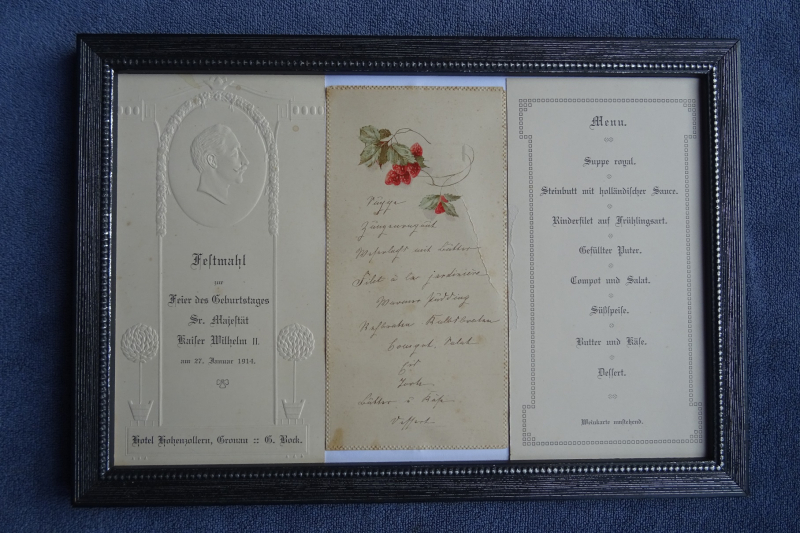 Festmahl
zur
Feier des Geburtstages
Sr. Majestät
Kaiser Wilhelm II.
am 27. Januar 1914.
Hotel Hohenzollern, Gronau :: G. Bock.
Suppe
Zungenragout
mit Butter
Filet à la jardinière
Warmer Pudding
Compot Salat
Eis
Torte
Butter u Käse
Dessert
Menu.
Suppe royal.
Steinbutt mit holländischer Sauce.
Rinderfilet auf Frühlingsart.
Gefüllter Puter.
Compot und Salat.
Süßspeise.
Butter und Käse.
Dessert.
Weinkarte umstehend.